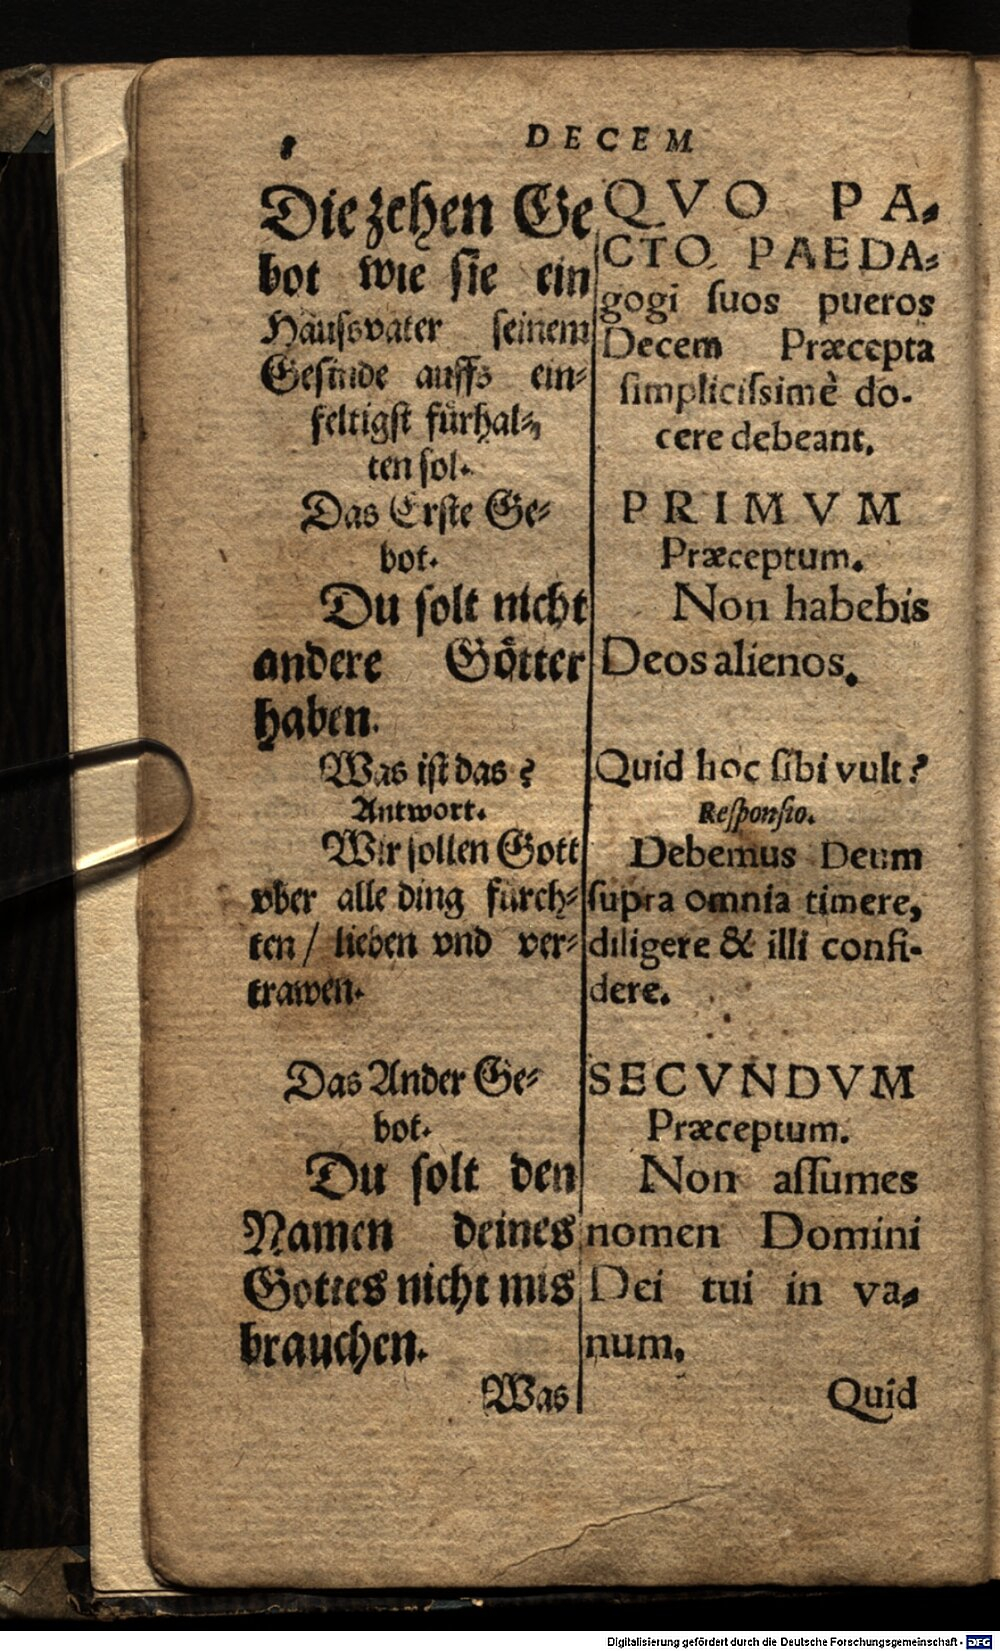 DECEM
Die zehen Ge
bot wie ſie ein
Haußvater ſeinem
Geſinde auffs ein⸗
feltigſt fürhal⸗
ten ſol.
Das Erſte Ge⸗
bot.
Du ſolt nicht
andere Götter
haben.
Was iſt das?
Antwort.
Wir ſollen Gott
vber alle ding fürch⸗
ten / lieben vnd ver⸗
trawen.
Das Ander Ge⸗
bot.
Du ſolt den
Namen deines
Gottes nicht mis
brauchen.
Was
QVO PA⸗
CTO PAEDA⸗
gogi ſuos pueros
Decem Præcepta
ſimpliciſsimè do-
cere debeant.
PRIMVM
Præceptum.
Non habebis
Deos alienos.
Quid hoc ſibi vult?
Reſponſio.
Debemus Deum
ſupra omnia timere,
diligere & illi confi-
dere.
SECVNDVM
Præceptum.
Non aſſumes
nomen Domini
Dei tui in va⸗
num.
Quid
Digitalisierung gefördert durch die Deutsche Forschungsgemeinschaft - DFG